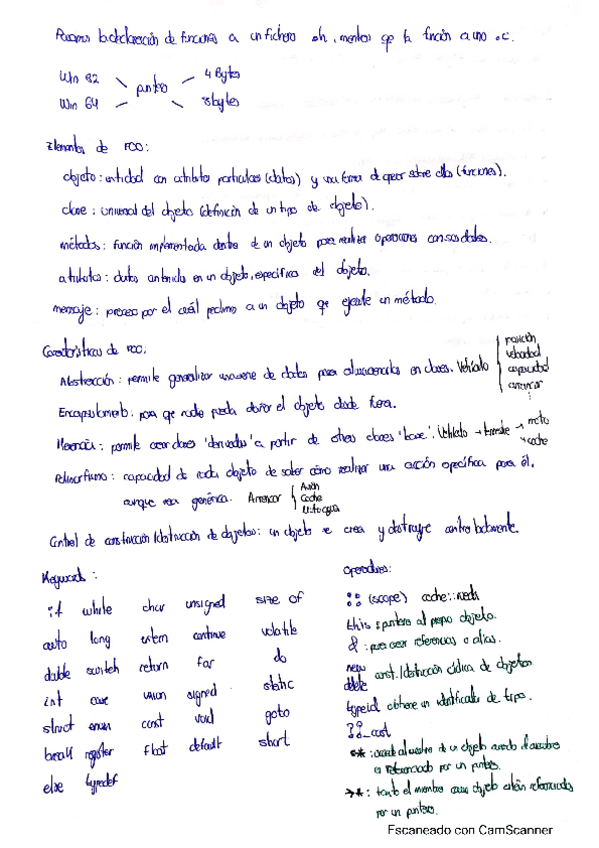 la declaración de funciones a un fichero .h, mientras que la función a uno .c.
Win 32 puntero 4 Bytes
Win 64 8bytes
Elementos de POO:
objeto: entidad con atributos particulares (datos) y una forma de operar sobre ellos (funciones).
clase: universal del objeto (definición de un tipo de objeto).
métodos: función implementada dentro de un objeto para realizar operaciones con sus datos.
atributos: datos contenidos en un objeto, específicos del objeto.
mensaje: proceso por el cuál pedimos a un objeto que ejecute un método.
Características de POO:
Abstracción: permite generalizar una serie de datos para almacenarlos en clases. Vehículo
posición
velocidad
capacidad
arrancar
Encapsulamiento: para que nadie pueda dañar el objeto desde fuera.
Herencia: permite crear clases 'derivadas' a partir de otras clases 'base'. Vehículo → terrestre → moto
→ coche
Polimorfismo: capacidad de cada objeto de saber cómo realizar una acción específica para él,
aunque sea genérica. Arrancar
Avión
Coche
Control de construcción/destrucción de objetos: un objeto se crea y destruye controladamente.
Keywords:
if while char unsigned size of
auto long extern continue volatile
double switch return far do
int case union signed static
struct enum const void goto
break register float default short
else typedef
Operadores:
:: (scope) coche::rueda
this: puntero al propio objeto.
&: para crear referencias o alias.
new
delete const./destrucción de objetos
typeid obtiene un identificador de tipo.
??_cast
.*: accede al miembro de un objeto cuando el miembro
es referenciado por un puntero.
->*: tanto el miembro como objeto están referenciados
por un puntero.
Escaneado con CamScanner